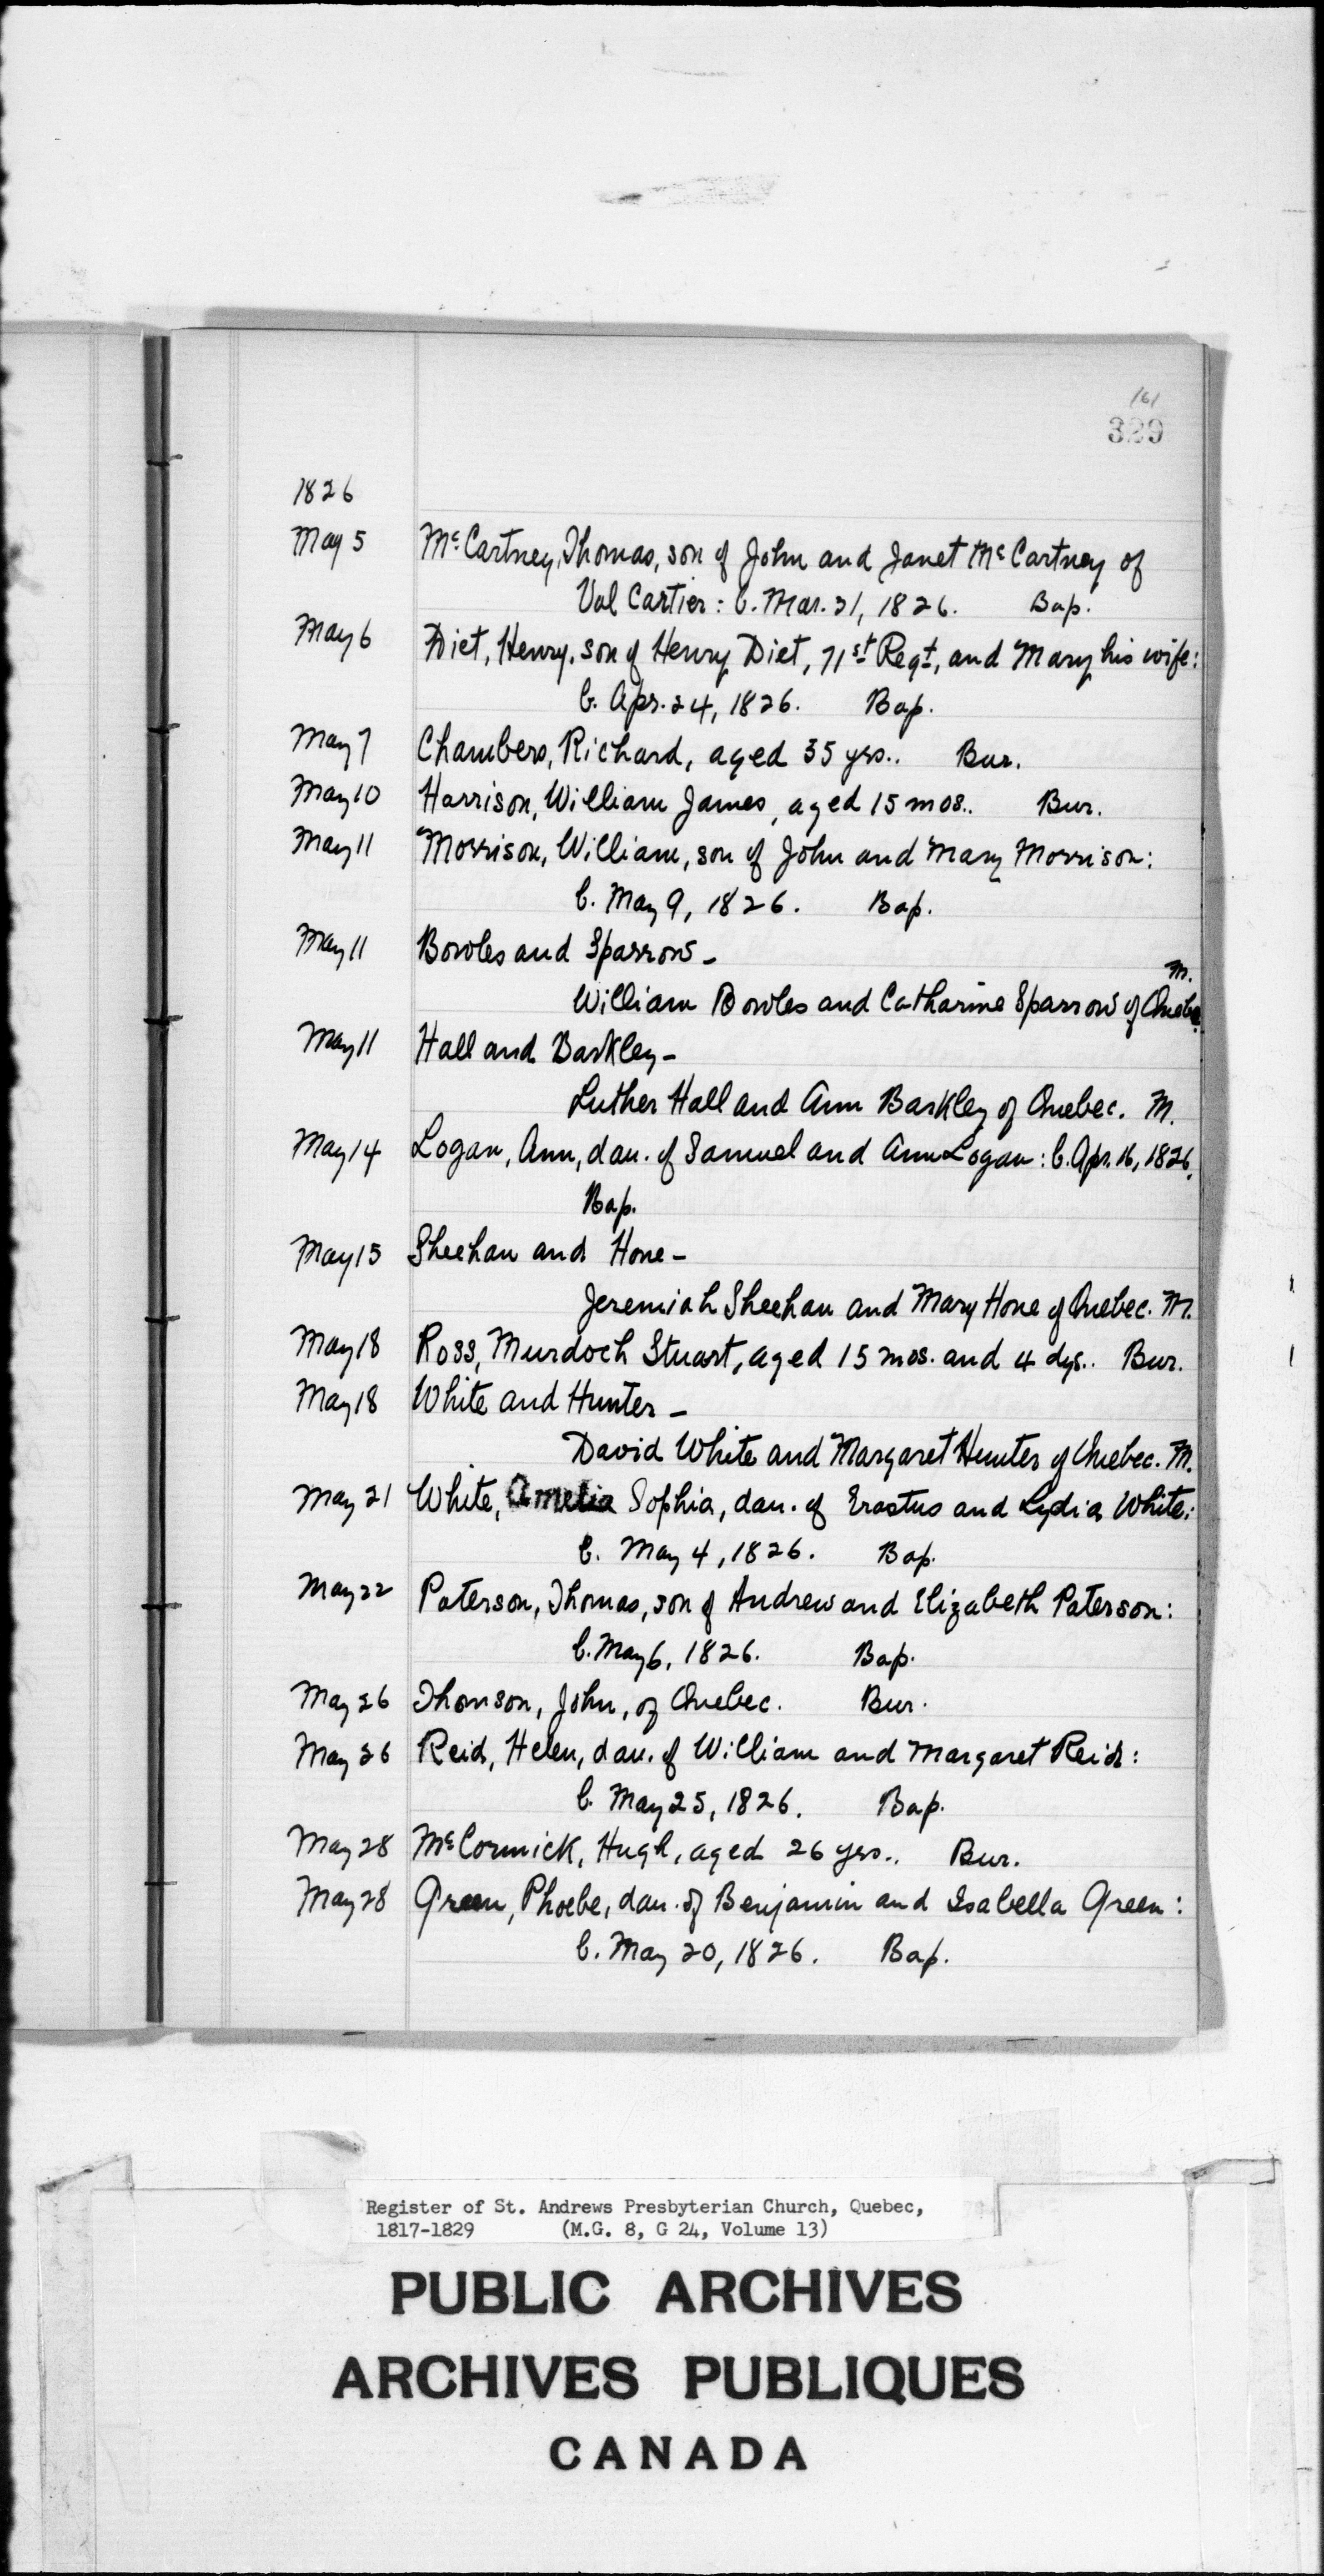 161
329
1826
May 5 McCartney, Thomas, son of John and Janet McCartney of
Val Cartier: b. Mar. 21, 1826. Bap.
May 6 Diet, Henry, son of Henry Diet, 71st Regt, and Mary his wife:
b. Apr. 24, 1826. Bap.
May 7 Chambers, Richard, aged 35 yrs.. Bur.
May 10 Harrison, William James, aged 15 mos.. Bur.
May 11 Morrison, William, son of John and Mary Morrison:
b. May 9, 1826. Bap.
May 11 Bowles and Sparrow -
M.
William Bowles and Catharine Sparrow of Quebec
May 11 Hall and Barkley -
Luther Hall and Ann Barkley of Quebec. M.
May 14 Logan, Ann, dau. of Samuel and Ann Logan: b. Apr. 16, 1826.
Bap.
May 15 Sheehan and Hone -
Jeremiah Sheehan and Mary Hone of Quebec. M.
May 18 Ross, Murdoch Stuart, aged 15 mos. and 4 dys.. Bur.
May 18 White and Hunter -
David White and Margaret Hunter of Quebec. M.
May 21 White, Amelia Sophia, dau. of Erastus and Lydia White:
b. May 4, 1826. Bap.
May 22 Paterson, Thomas, son of Andrew and Elizabeth Paterson:
b. May 6, 1826. Bap.
May 26 Thomson, John, of Quebec. Bur.
May 26 Reid, Helen, dau. of William and Margaret Reid:
b. May 25, 1826. Bap.
May 28 McCormick, Hugh, aged 26 yrs.. Bur.
May 28 Green, Phoebe, dau. of Benjamin and Isabella Green:
b. May 20, 1826. Bap.
Register of St. Andrews Presbyterian Church, Quebec,
1817-1829 (M.G. 8, G 24, Volume 13)
PUBLIC ARCHIVES
ARCHIVES PUBLIQUES
CANADA